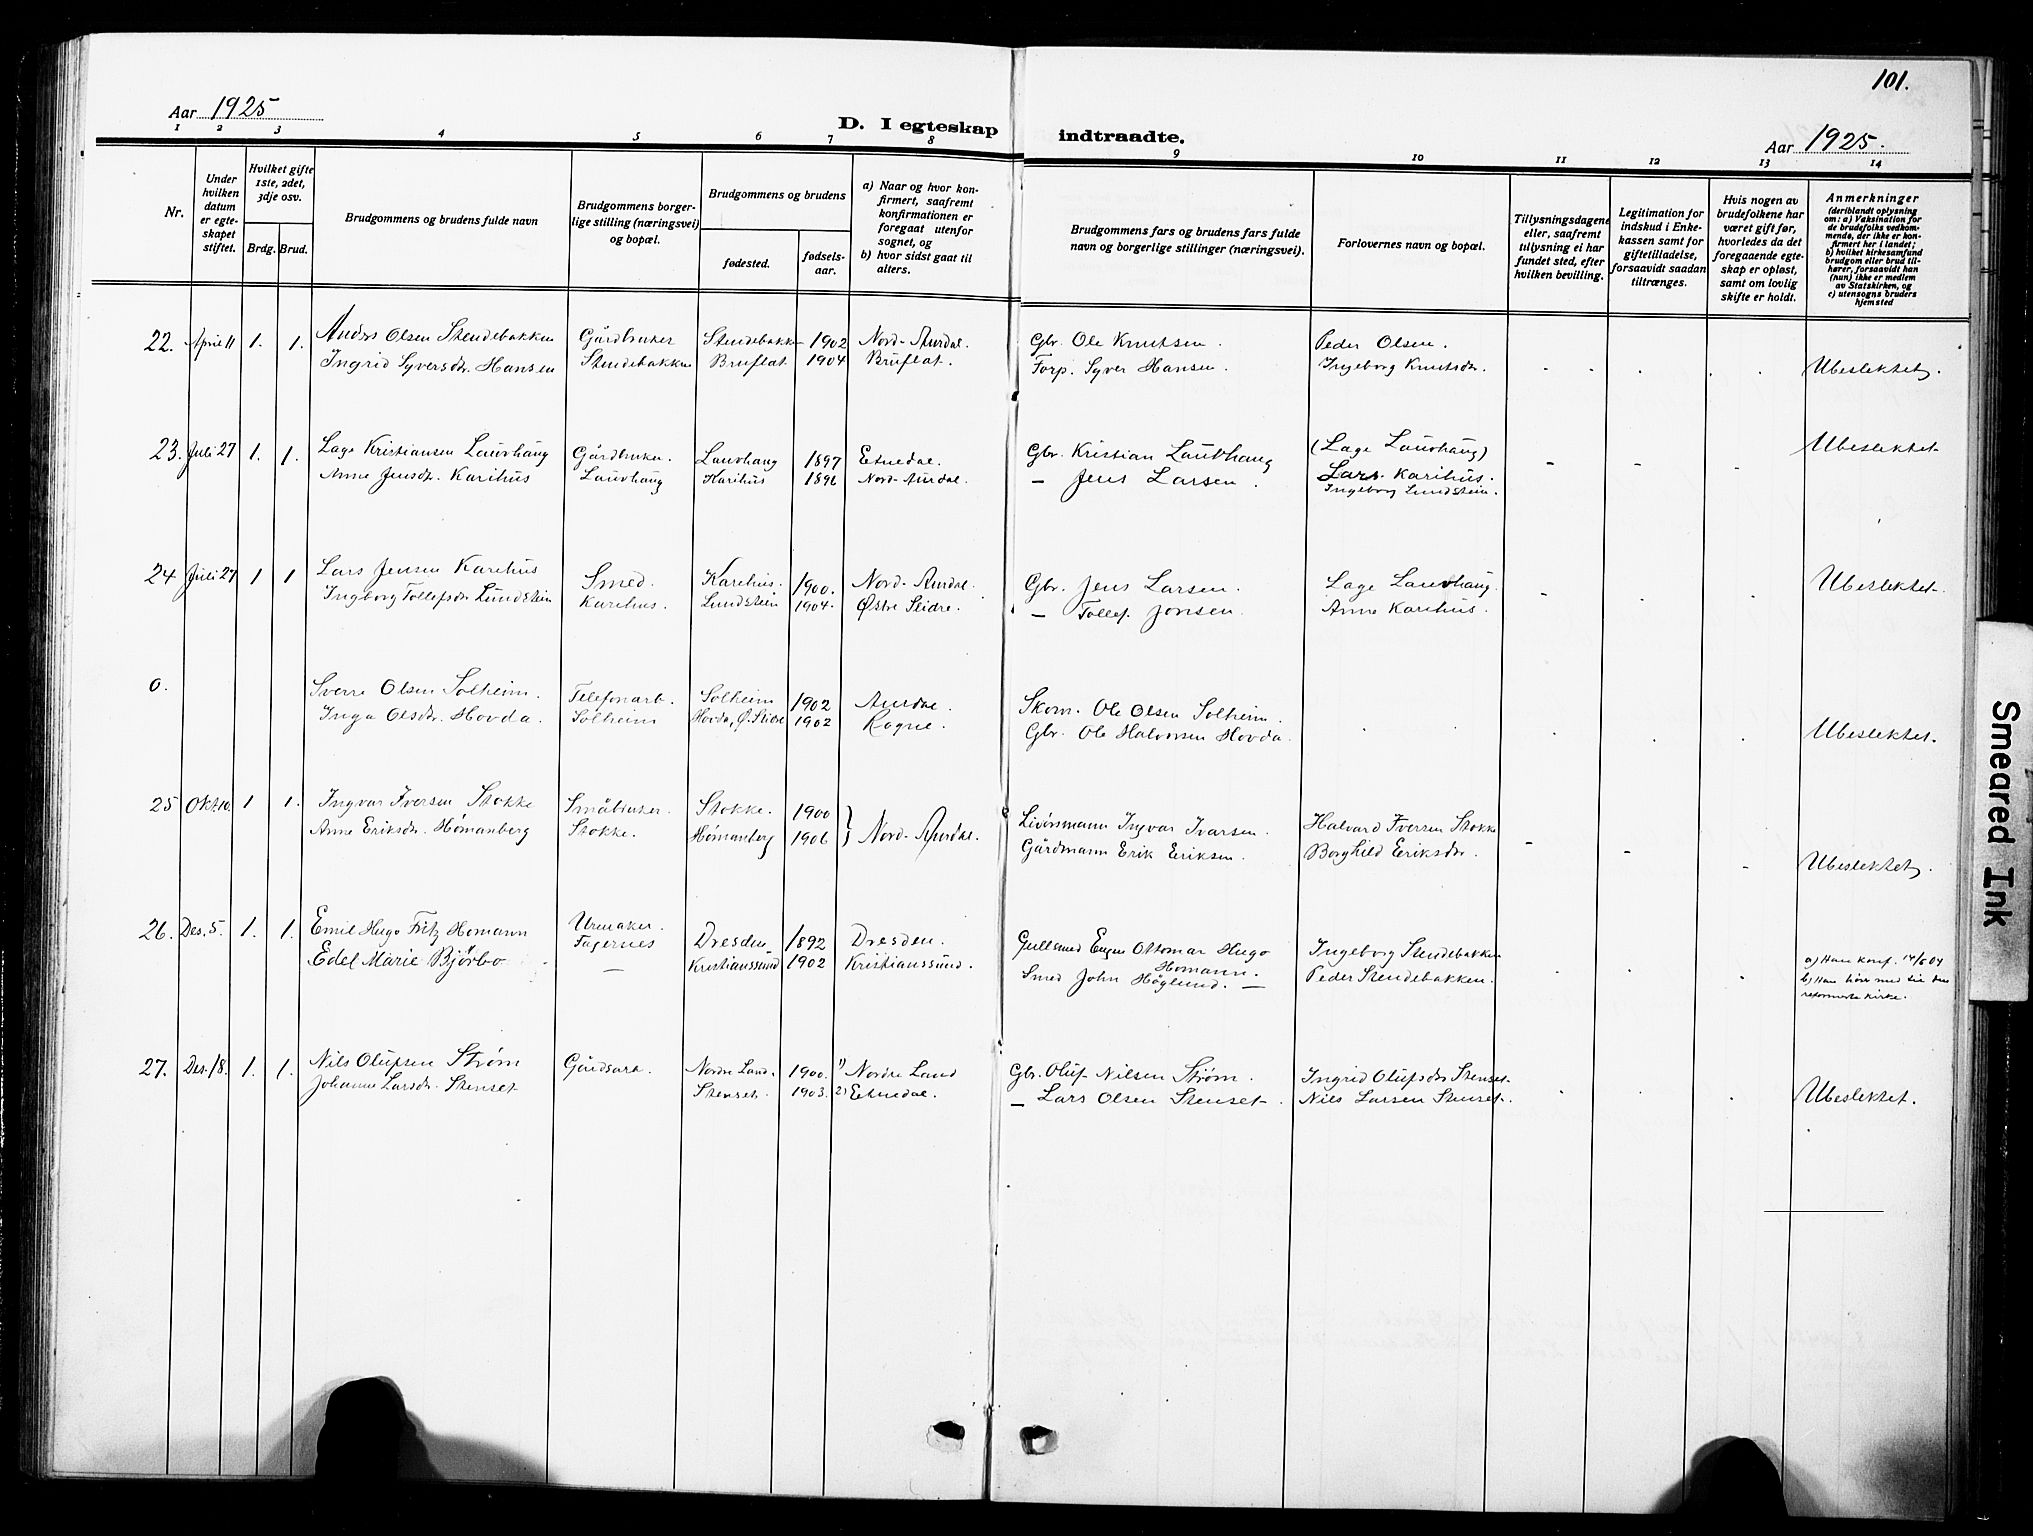 101.
Aar 1925
D. I egteskap indtraadte.
Aar 1925.
1 2 3 4 5 6 7 8 9 10 11 12 13 14
Nr.
Under hvilken datum er egteskapet stiftet.
Hvilket gifte 1ste, 2det, 3dje osv.
Brdg. Brud.
Brudgommens og brudens fulde navn
Brudgommens borgerlige stilling (næringsvei) og bopæl.
Brudgommens og brudens
fødested.
fødselsaar.
a) Naar og hvor konfirmert, saafremt konfirmationen er foregaat utenfor sognet, og
b) hvor sidst gaat til alters.
Brudgommens fars og brudens fars fulde navn og borgerlige stillinger (næringsvei).
Forlovernes navn og bopæl.
Tillysningsdagene eller, saafremt tillysning ei har fundet sted, efter hvilken bevilling.
Legitimation for indskud i Enkekassen samt for giftetilladelse, forsaavidt saadan tiltrænges.
Hvis nogen av brudefolkene har været gift før, hvorledes da det foregaaende egteskap er opløst, samt om lovlig skifte er holdt.
Anmerkninger
(deriblandt oplysning om: a) Vaksination for de brudefolks vedkommende, der ikke er konfirmert her i landet; b) hvilket kirkesamfund brudgom eller brud tilhører, forsaavidt han (hun) ikke er medlem av Statskirken, og c) utensogns bruders hjemsted
22. April 11 1. 1. Anders Olsen Stendebakken Gårdbruker Stendebakken 1902 Nord-Aurdal. Gbr. Ole Knutsen. Peder Olsen.
Ingrid Syversdr. Hansen Stendebakken Bruflat 1904 Bruflat. Forp. Syver Hansen. Ingeborg Knutsdr. Ubeslektet.
23. Juli 27 1. 1. Lage Kristiansen Lauvhaug Gårdbruker. Lauvhaug 1897 Etnedal. Gbr. Kristian Lauvhaug (Lage Lauvhaug) Ubeslektet
Anne Jensdr. Karihus Lauvhaug Karihus 1896 Nord-Aurdal. — Jens Larsen. Lars Karihus.
Ingeborg Lundstein.
24 Juli 27 1 1 Lars Jensen Karihus Smed. Karihus. 1900. Nord-Aurdal Gbr. Jens Larsen. Lage Lauvhaug Ubeslektet
Ingeborg Tollefsdr Lundstein Karihus. Lundstein 1904. Østre Slidre. — Tollef Jonsen Anne Karihus.
0. Sverre Olsen Solheim. Telefonarb. Solheim 1902 Aurdal Skom. Ole Olsen Solheim.
Inga Olsdr. Hovda. Solheim Hovda, Ø. Slidre 1902 Rogne. Gbr. Ole Halvorsen Hovda. Ubeslektet.
25 Okt. 10. 1 1. Ingvar Iversen Stokke Småbruker. Stokke. 1900 } Nord-Aurdal. Livörsmann Ingvar Ivarsen. Halvard Iversen Stokke
Anne Eriksdr. Hømanberg Stokke. Hømanberg 1906 Gårdmann Erik Eriksen. Borghild Eriksdr. Ubeslektet.
26. Des. 5. 1. 1. Emil Hugo Fritz Homann Urmaker. Dresden 1892 Dresden. Gullsmed Eugen Ottomar Hugo Homann. Ingeborg Stendebakken
Edel Marie Bjørbo Fagernes — Kristianssund 1902 Kristianssund. Smed John Höglund. — Peder Stendebakken.
a) Han konf. 14/6 04
b) Han hører med til den
reformerte kirke.
27. Des. 18. 1. 1. Nils Olufsen Strøm Gårdsarb. Nordre Land. 1900. 1) Nordre Land Gbr. Oluf Nilsen Strøm. Ingrid Olufsdr Stenset
Johanne Larsdr. Stenset Stenset. 1903. 2) Etnedal. — Lars Olsen Stenset. Nils Larsen Stenset. Ubeslektet.
Smeared Ink